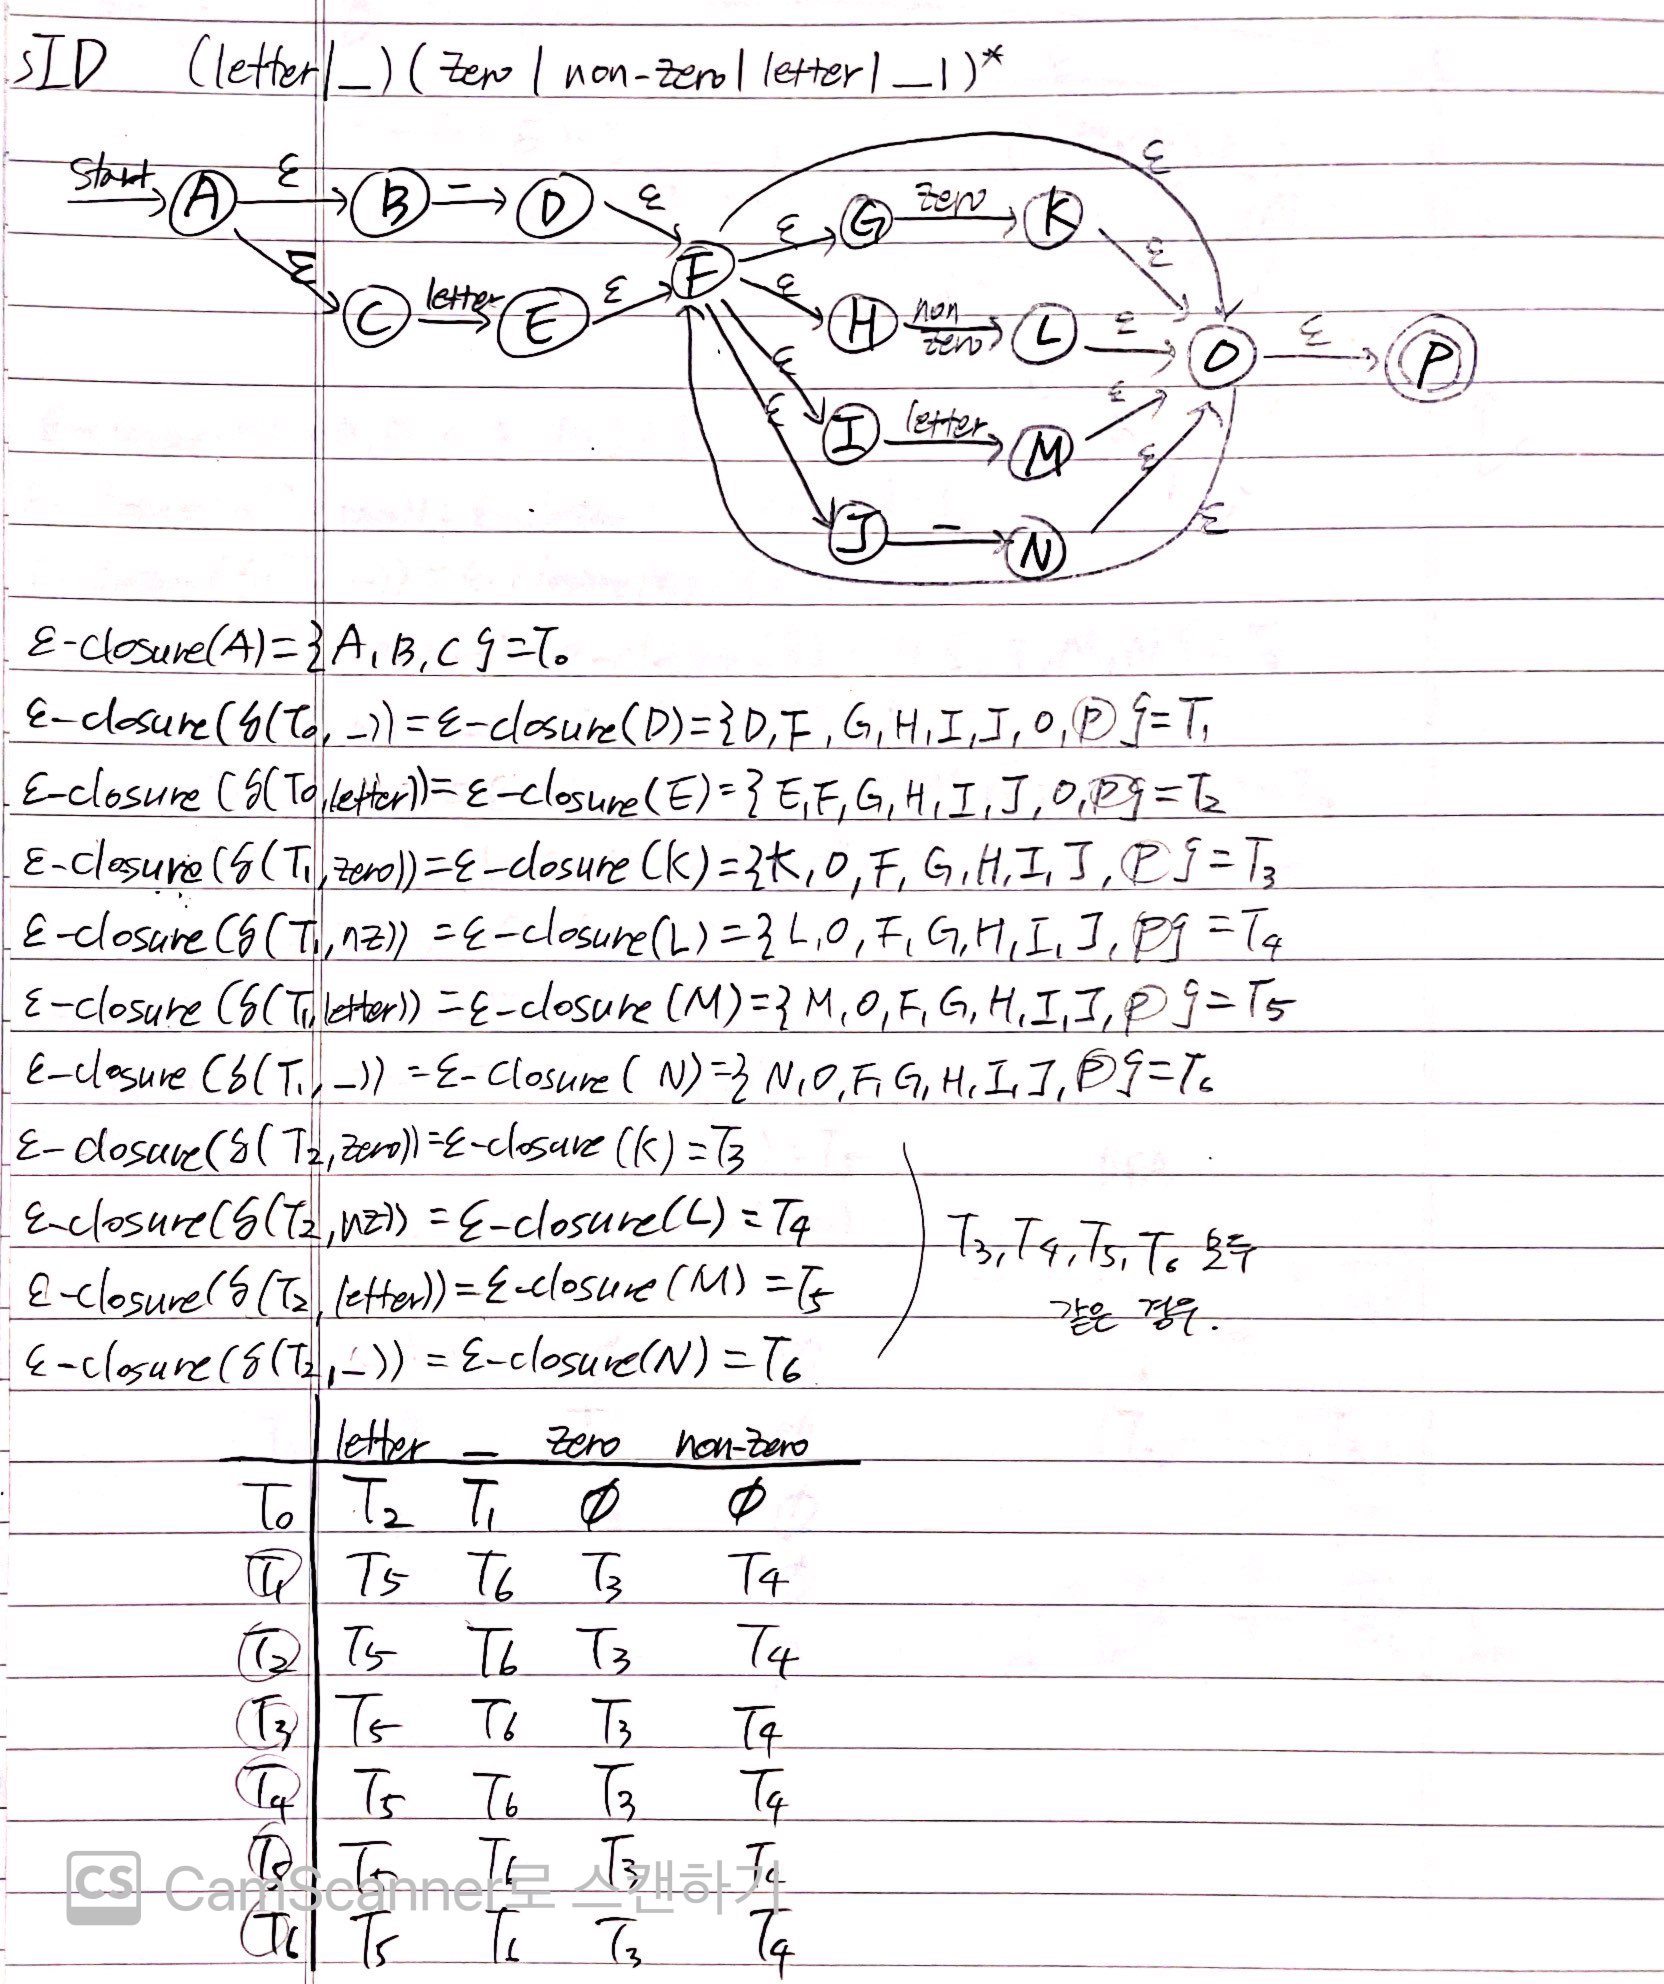 sID (letter|_)(zero | non-zero | letter | _|)*
Start A ε B _ D ε
ε C letter E ε F
ε G zero K ε ε
ε H non zero L ε O ε P
ε I letter M ε
ε J _ N ε ε
ε-closure(A)={A,B,C}=T₀
ε-closure(δ(T₀,_))=ε-closure(D)={D,F,G,H,I,J,O,P}=T₁
ε-closure(δ(T₀,letter))=ε-closure(E)={E,F,G,H,I,J,O,P}=T₂
ε-closure(δ(T₁,zero))=ε-closure(K)={K,O,F,G,H,I,J,P}=T₃
ε-closure(δ(T₁,nz))=ε-closure(L)={L,O,F,G,H,I,J,P}=T₄
ε-closure(δ(T₁,letter))=ε-closure(M)={M,O,F,G,H,I,J,P}=T₅
ε-closure(δ(T₁,_))=ε-closure(N)={N,O,F,G,H,I,J,P}=T₆
ε-closure(δ(T₂,zero))=ε-closure(K)=T₃
ε-closure(δ(T₂,nz))=ε-closure(L)=T₄
ε-closure(δ(T₂,letter))=ε-closure(M)=T₅
ε-closure(δ(T₂,_))=ε-closure(N)=T₆
T₃,T₄,T₅,T₆ 모두
같은 경우.
letter _ zero non-zero
T₀ T₂ T₁ ∅ ∅
T₁ T₅ T₆ T₃ T₄
T₂ T₅ T₆ T₃ T₄
T₃ T₅ T₆ T₃ T₄
T₄ T₅ T₆ T₃ T₄
T₅ T₅ T₆ T₃ T₄
CS CamScanner로 스캔하기
T₆ T₅ T₆ T₃ T₄